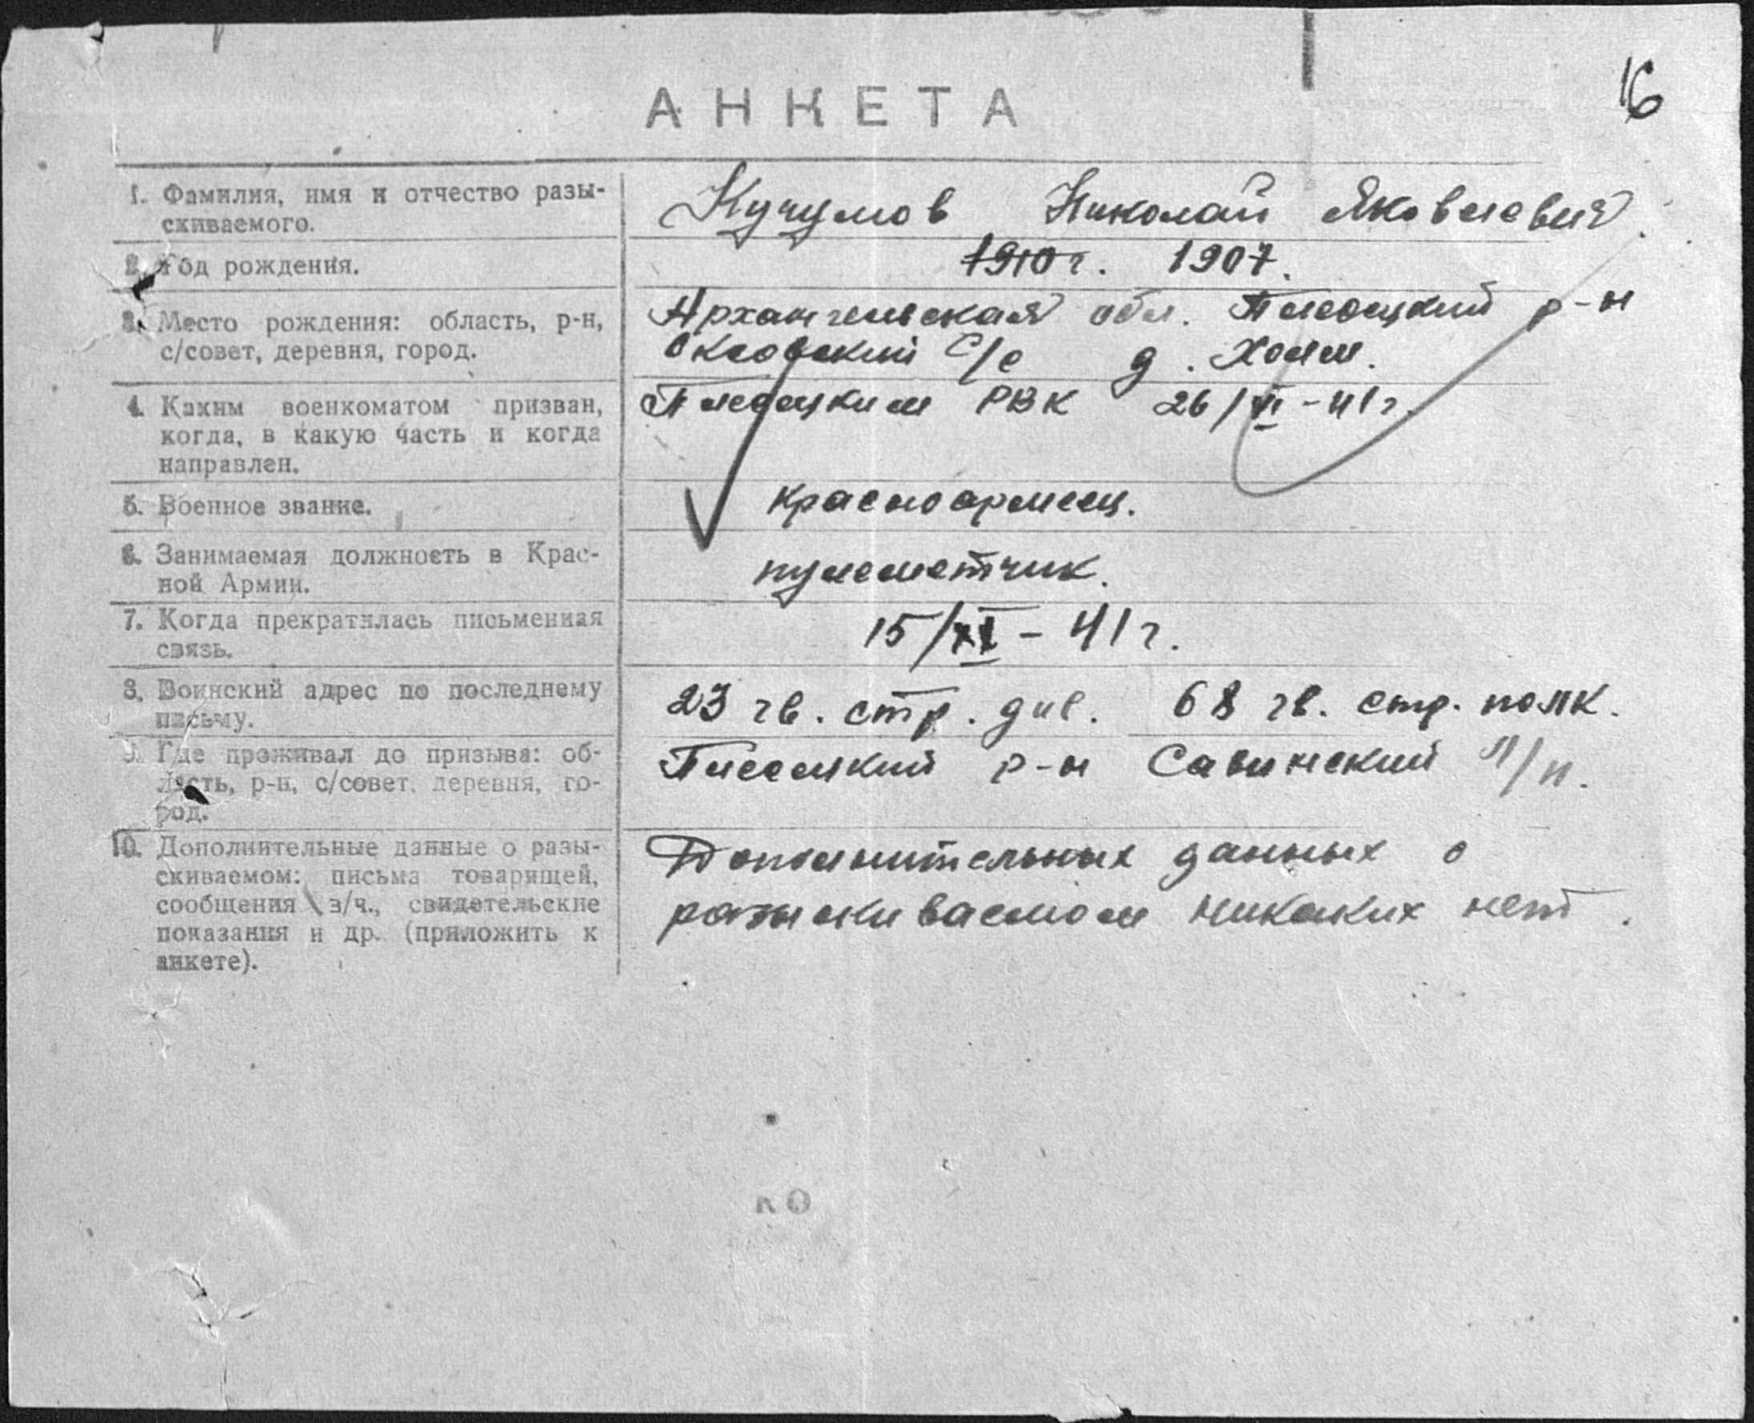 16
АНКЕТА
1. Фамилия, имя и отчество разы-
скиваемого.
Кучумов Николай Яковлевич
2. Год рождения.
1910 г. 1907.
3. Место рождения: область, р-н,
с/совет, деревня, город.
Архангельская обл. Плесецкий р-н
Оксовский с/с д. Холм.
4. Каким военкоматом призван,
когда, в какую часть и когда
направлен.
Плесецким РВК 26/VI-41 г.
5. Военное звание.
красноармеец.
6. Занимаемая должность в Крас-
ной Армии.
пулеметчик.
7. Когда прекратилась письменная
связь.
15/XI - 41 г.
8. Воинский адрес по последнему
письму.
23 гв. стр. див. 68 гв. стр. полк.
9. Где проживал до призыва: об-
ласть, р-н, с/совет, деревня, го-
род.
Плесецкий р-н Савинский л/п.
10. Дополнительные данные о разы-
скиваемом: письма товарищей,
сообщения в/ч., свидетельские
показания и др. (приложить к
анкете).
Дополнительных данных о
разыскиваемом никаких нет.